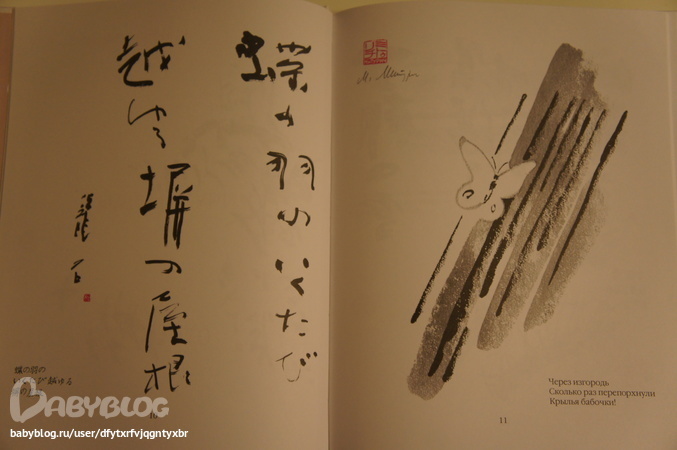 蝶の羽のいくたび
越ゆる塀の屋根
蝶の羽の
いくたび越ゆる
Через изгородь
Сколько раз перепорхнули
Крылья бабочки!
11
BABYBLOG
babyblog.ru/user/dfytxrfvjqgntyxbr